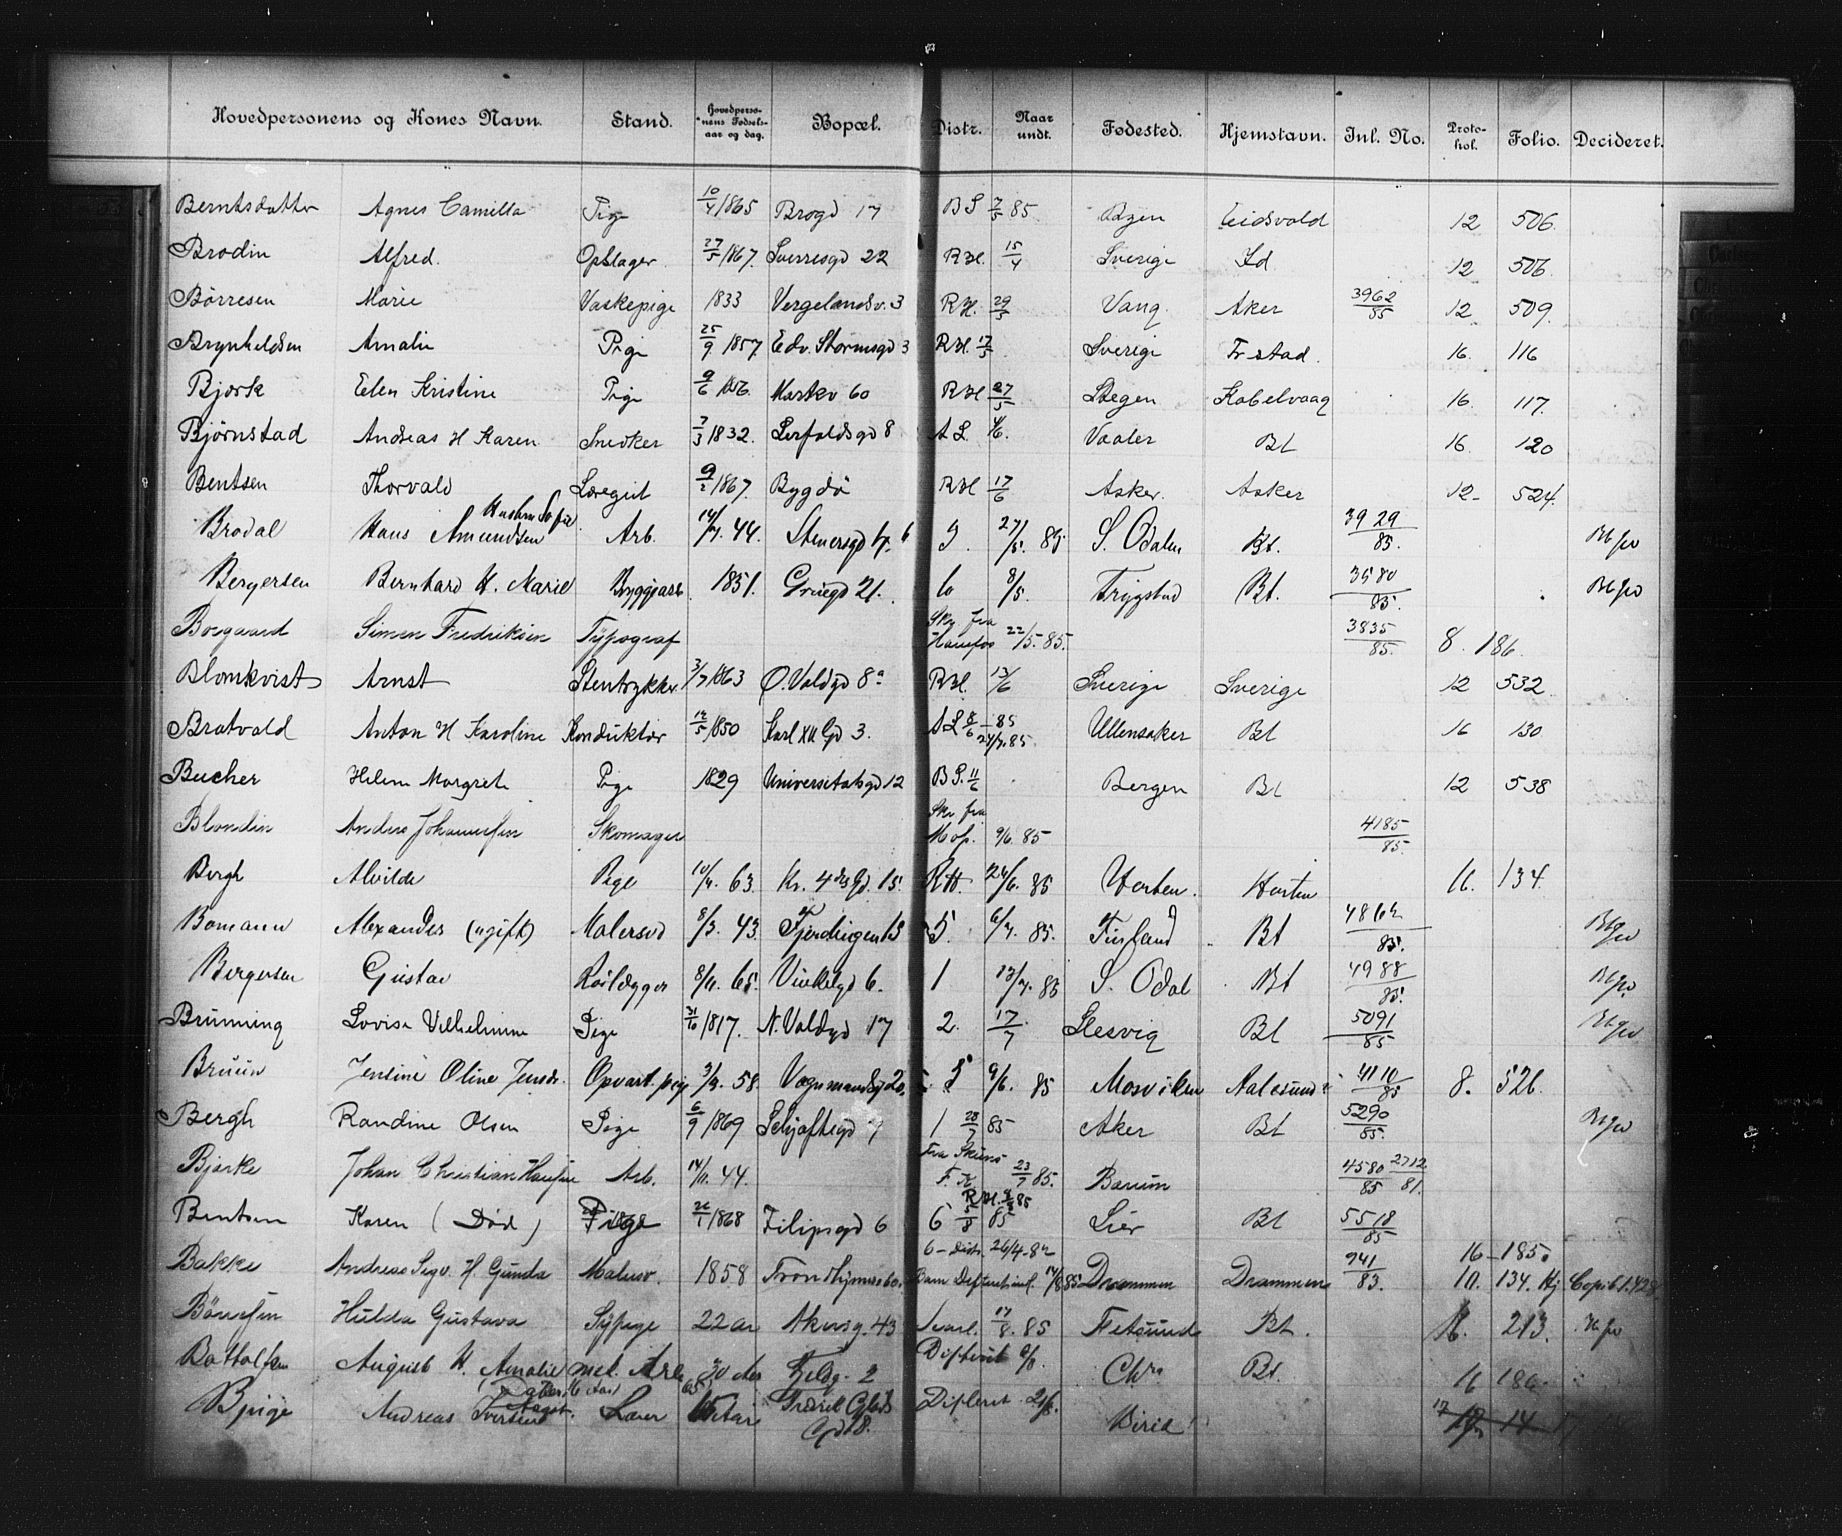 Hovedpersonens og Kones Navn. Stand. Hovedpersonens Fødselsaar og dag. Bopæl. Distr. Naar undt. Fødested. Hjemstavn. Inl. No. Protokol. Folio. Decideret.
Berntsdatter Agnes Camilla Pige 10/4 1865 Brogd 17 BS 7/5 85 Eidsvold 12 506
Brodin Alfred 27/5 1867. Sverresgd 22 RH. 15/4 Sverige Id 12 506.
Børresen Marie Vaskepige 1833 Vergelandsv. 3 RH. 29/5 Vang. Aker 3962/85 12 509.
Brynheldsen Amalie Pige 25/9 1857. Edv. Stormsgd 3 RH. 17/5 Sverige Frstad. 16. 116
Bjørk Elen Kristine Pige 9/6 1856. Markv 60 RH 27/5 Stegen Kabelvaag 16. 117.
Bjørnstad Andreas H Karen Snedker 7/3 1832. Lerfaldsgd 8 AL. Vaaler Bt 16. 120
Bentsen Thorvald Løregut 9/2 1867. Bygdø RH 17/6 Asker. Asker 12- 524.
Brodal Hans Amundsen Arb. 14/7. 44. Stenersgd 27/5. 85 S. Odalen Bt. 3929/85.
Bergersen Bernhard H. Marie Bryggearb. 1851. Grüegd 21. 6 8/5. Trygstad Bt. 3580/85.
Borgaard Simen Fredriksen Typograf Sky fra Hønefos 22/5. 85. 3835/85. 8. 186.
Blomkvist Arnst Stentrykker 3/7 1863 Ø. Voldgd 8a RH. 13/6 Sverige Sverige 12 532
Bratvold Anton H Karoline Konduktør 12/5 1850 Karl XII Gd 3. AL 8/6 -85 24/7.85 Ullensaker Bt 16 130
Bucher Helene Margrete Pige 1829 Universitetsgd 12 BS. 11/6 Bergen Bt 12 538
Blondin Anders Johannesen Skomager Skr fra Mos. 9/6. 85 4185/85.
Bergh Alvilde Pige 10/4. 63. Kr. 4des Gd. 15. RH. 24/6. 85 Horten. Horten 16. 134.
Bomann Alexander (ugift) Malersvd 8/3. 43. Fjerdingen 13 5. 6/7. 85. Finland Bt 4862/85.
Bergersen Gustav 8/11. 65. Vinkelgd 6. 1 13/7. 85 S. Odal Bt 4988/85.
Brünning Lovise Vilhelmine Pige 31/6 1817. N. Voldgd 17 2. 17/7 Slesvig Bt 5091/85
Bruun Jensine Oline Jensdr. Opvart.pig 3/9. 58. Vognmandsgd 20. 5 9/6. 85 Mosviken Aalesund 4110/85 8. 526.
Bergh Randine Olsen Pige 6/9 1869 Schjøftegd 7 1 28/7 85 Aker Bt 5290/85. Bt
Bjørke Johan Christian Hansen Arb. 14/11. 44. Fra Skiens F. K 23/7 85. Bærum 4580/85 2712/81.
Bentsen Karen (Død) Pige 26/1 1868 Filipsgd 6 6 5/8 85 Lier Bt 5518/85
6 - Distr. 26/4-87 16 - 185.
Bakke Andreas Sigv. H. Gunda Malersv. 1858 Trondhjemsv 60. Barn Difterit inl. 14/8 85 Drammen Drammen 941/83. 10. 134. Hj Copib 1.428
Hulda Gustava Sypige 22 aar Akersg. 43 17/8. 85 Fetsund Bt. 16. 213.
August H. Amalie 30 Aar 2 Difterit Chra Bt. 16 186.
Andreas Difterit Birid 17 14